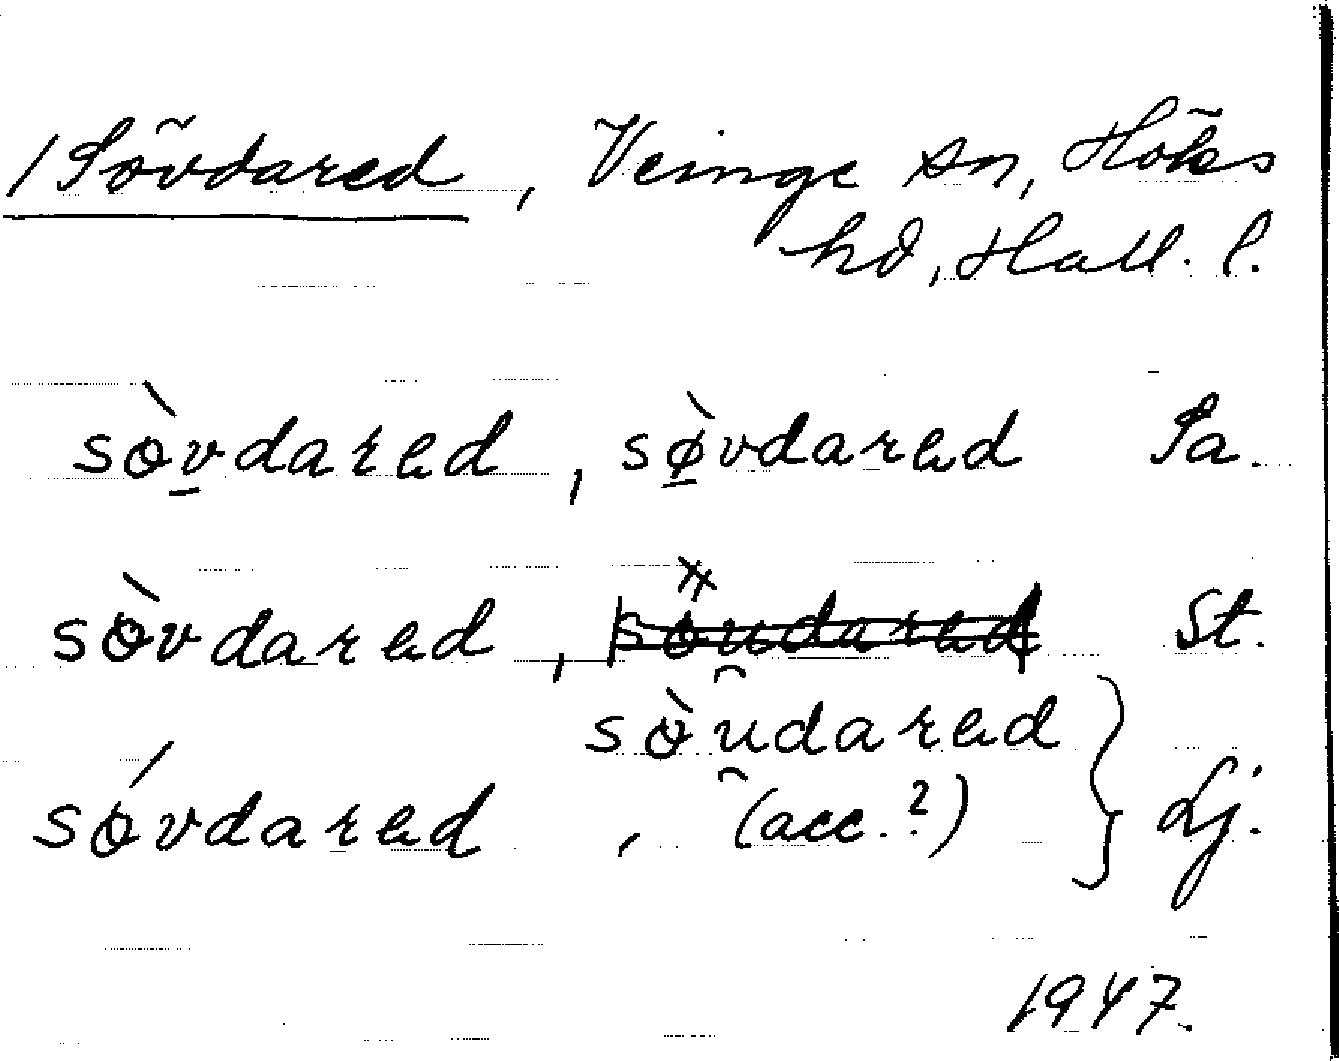 /Sövdared, Veinge sn, Höks
hd, Hall. l.
sòvdared, sø̀vdared Sa.
sòvdared, söudared St.
sòudared
sóvdared, (acc.?) Lj.
1947.